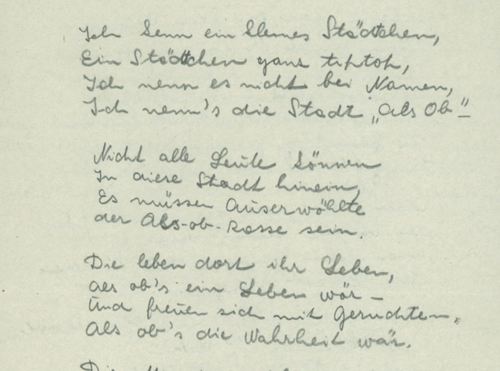 Ich kenn ein kleines Städtchen,
Ein Städtchen ganz tiptop,
Ich nenn es nicht bei Namen,
Ich nenn's die Stadt „Als Ob"–
Nicht alle Leute können
In diese Stadt hinein,
Es müssen Auserwählte
der Als-ob-Rasse sein.
Die leben dort ihr Leben,
als ob's ein Leben wär –
Und freuen sich mit Gerüchten,
Als ob's die Wahrheit wär.
Die